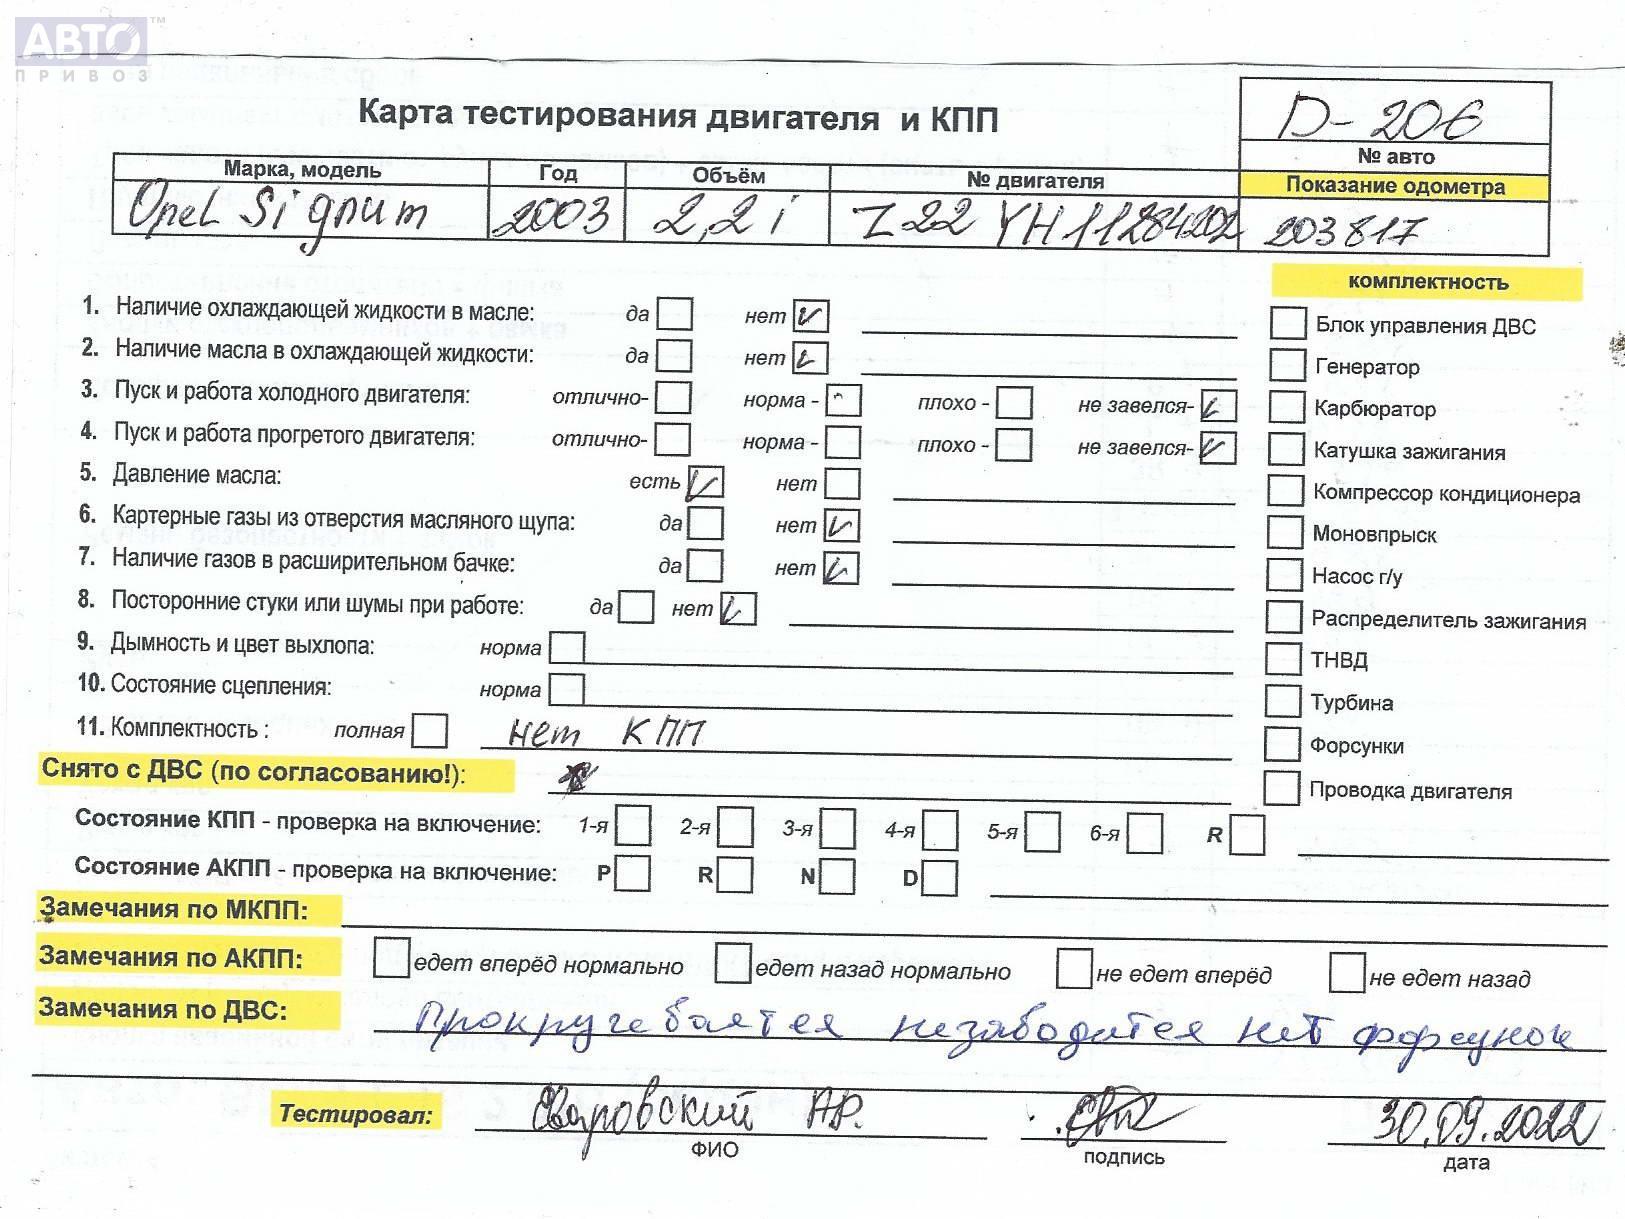 АВТО ™
ПРИВОЗ
Карта тестирования двигателя и КПП
D-206
№ авто
Марка, модель Год Объём № двигателя Показание одометра
Opel Signum 2003 2,2 i Z22 YH11284202 203817
комплектность
1. Наличие охлаждающей жидкости в масле: да нет
Блок управления ДВС
2. Наличие масла в охлаждающей жидкости: да нет
Генератор
3. Пуск и работа холодного двигателя: отлично- норма - плохо - не завелся-
Карбюратор
4. Пуск и работа прогретого двигателя: отлично- норма - плохо - не завелся-
Катушка зажигания
5. Давление масла: есть нет
Компрессор кондиционера
6. Картерные газы из отверстия масляного щупа: да нет
Моновпрыск
7. Наличие газов в расширительном бачке: да нет
Насос г/у
8. Посторонние стуки или шумы при работе: да нет
Распределитель зажигания
9. Дымность и цвет выхлопа: норма
ТНВД
10. Состояние сцепления: норма
Турбина
11. Комплектность : полная нет КПП
Форсунки
Снято с ДВС (по согласованию!):
Проводка двигателя
Состояние КПП - проверка на включение: 1-я 2-я 3-я 4-я 5-я 6-я R
Состояние АКПП - проверка на включение: P R N D
Замечания по МКПП:
Замечания по АКПП: едет вперёд нормально едет назад нормально не едет вперёд не едет назад
Замечания по ДВС: Прокручевается незаводится нет форсунок
Тестировал: АР. 30.09.2022
ФИО подпись дата